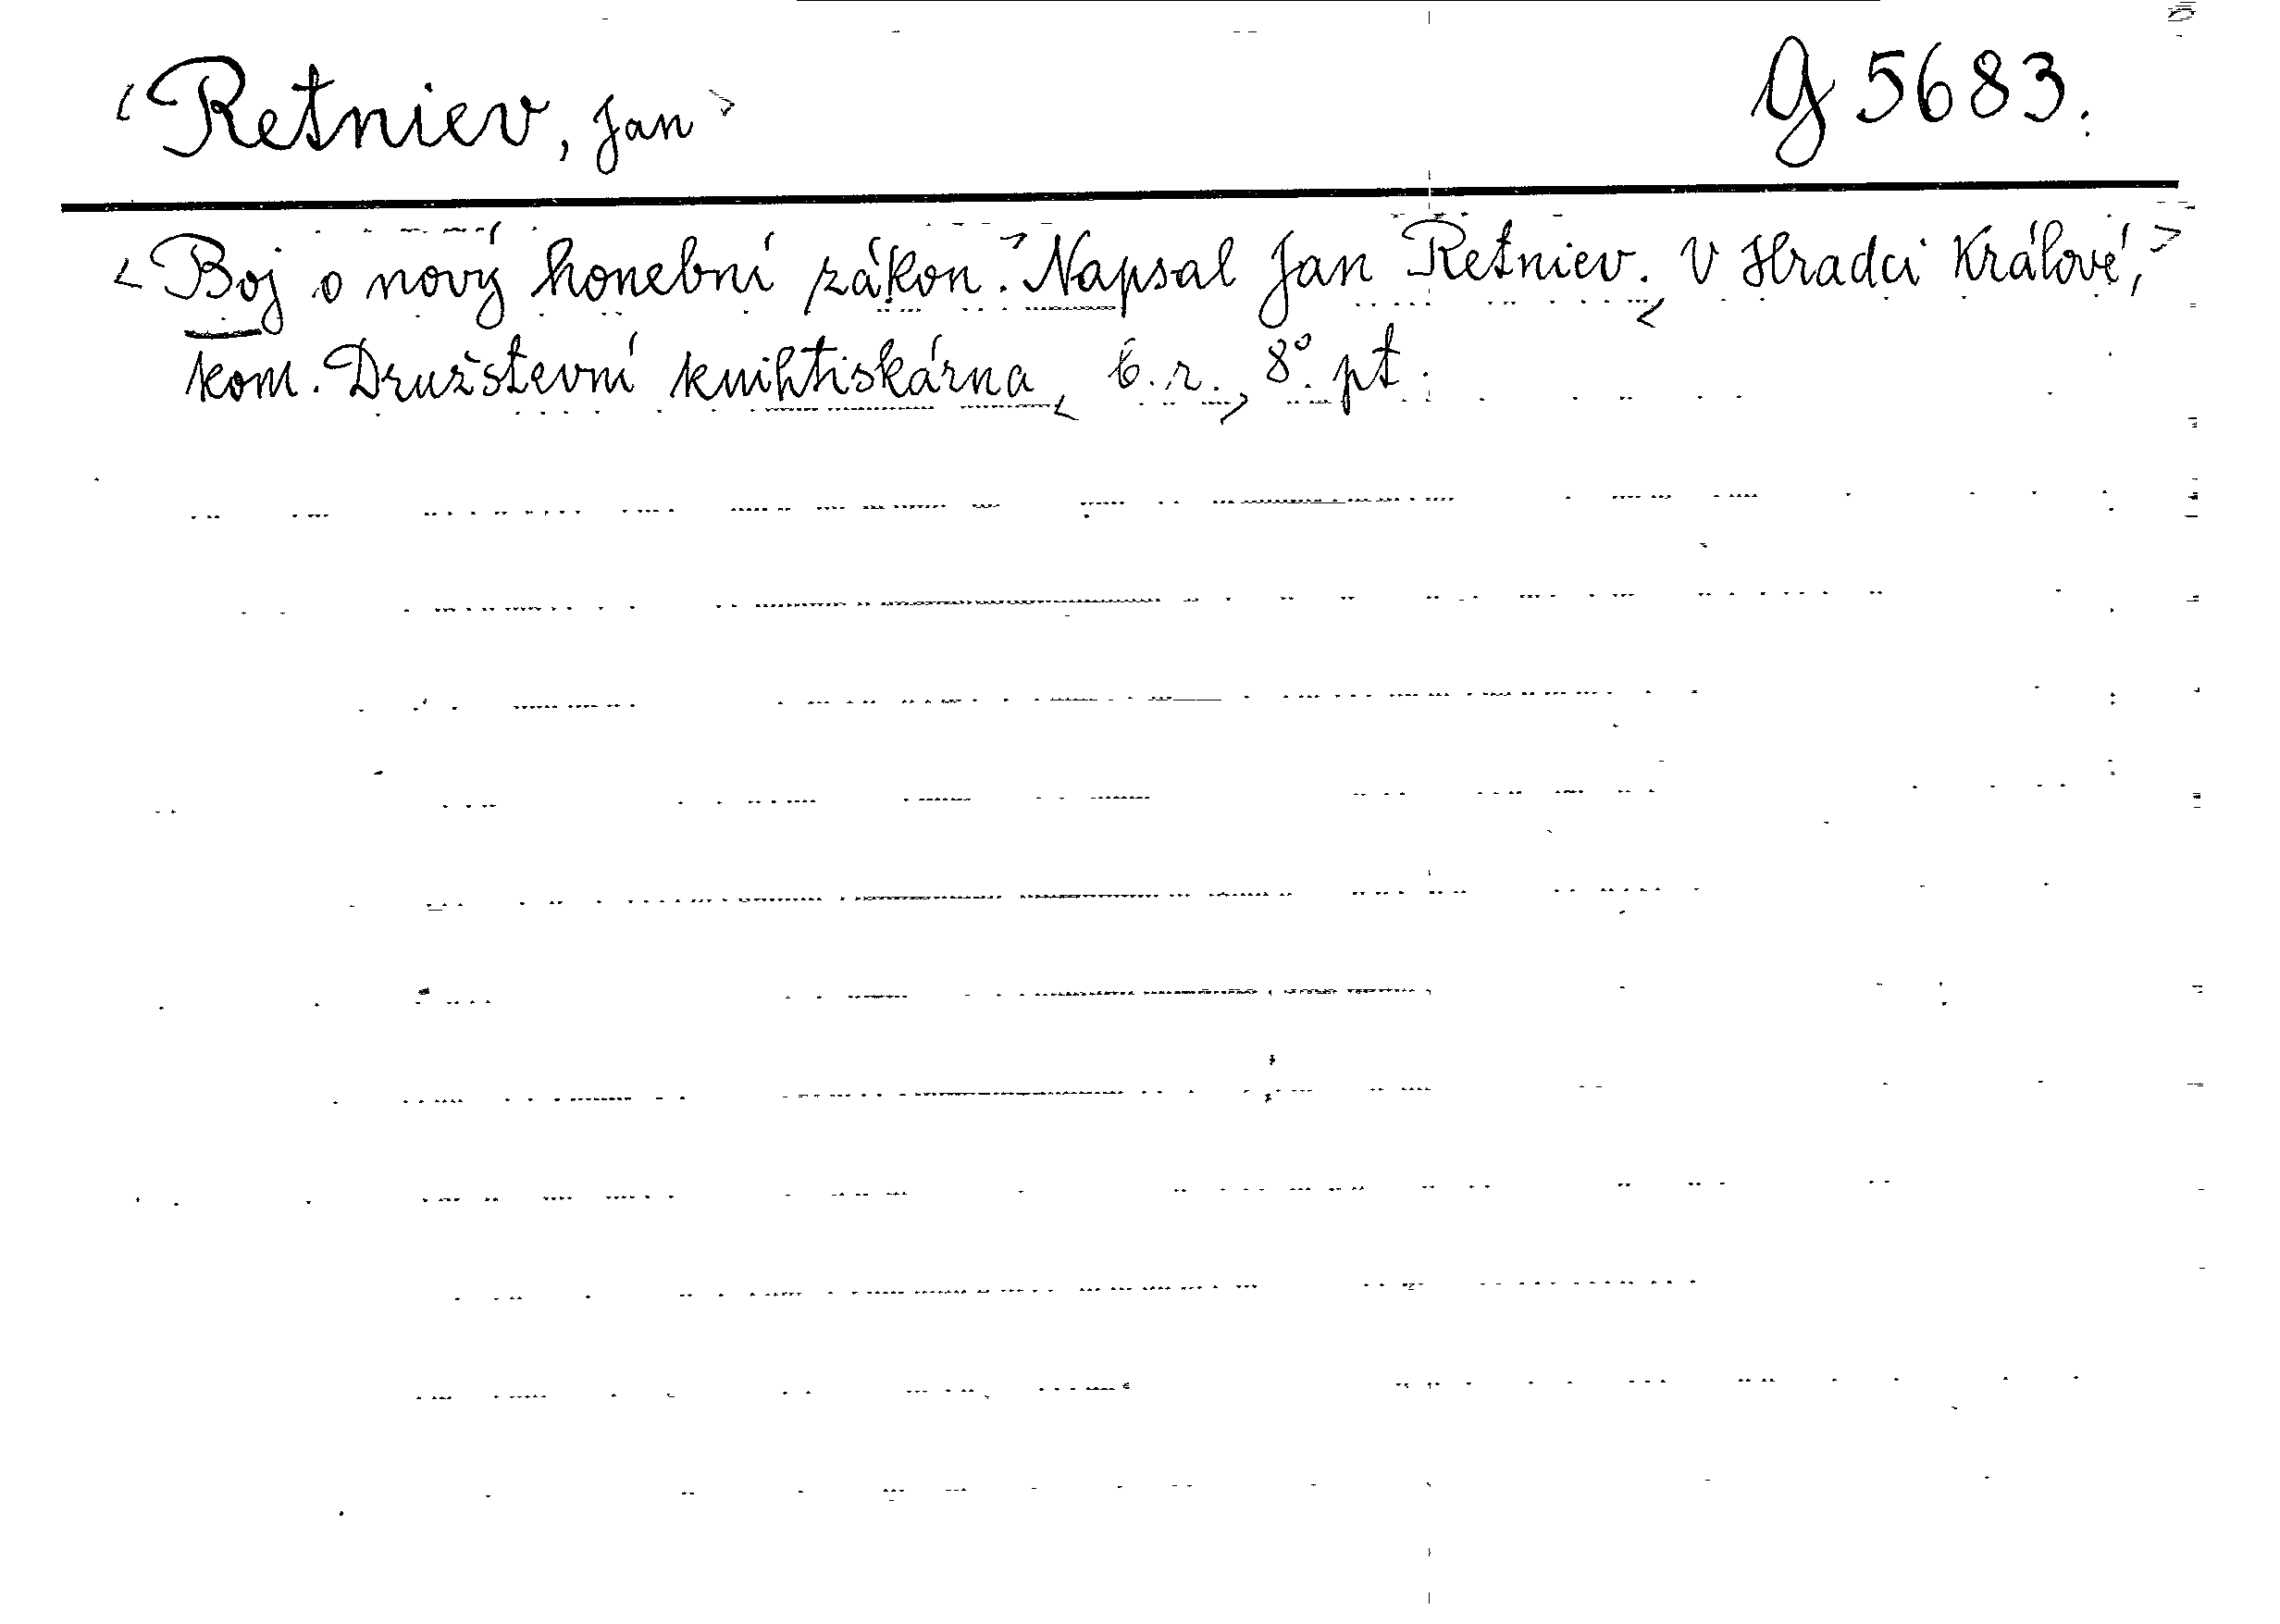 <Retniev, Jan> G 5683.
<Boj o nový honební zákon.> Napsal Jan Retniev. <V Hradci Králové,>
kom. Družstevní knihtiskárna < b. r., > 8° pt.